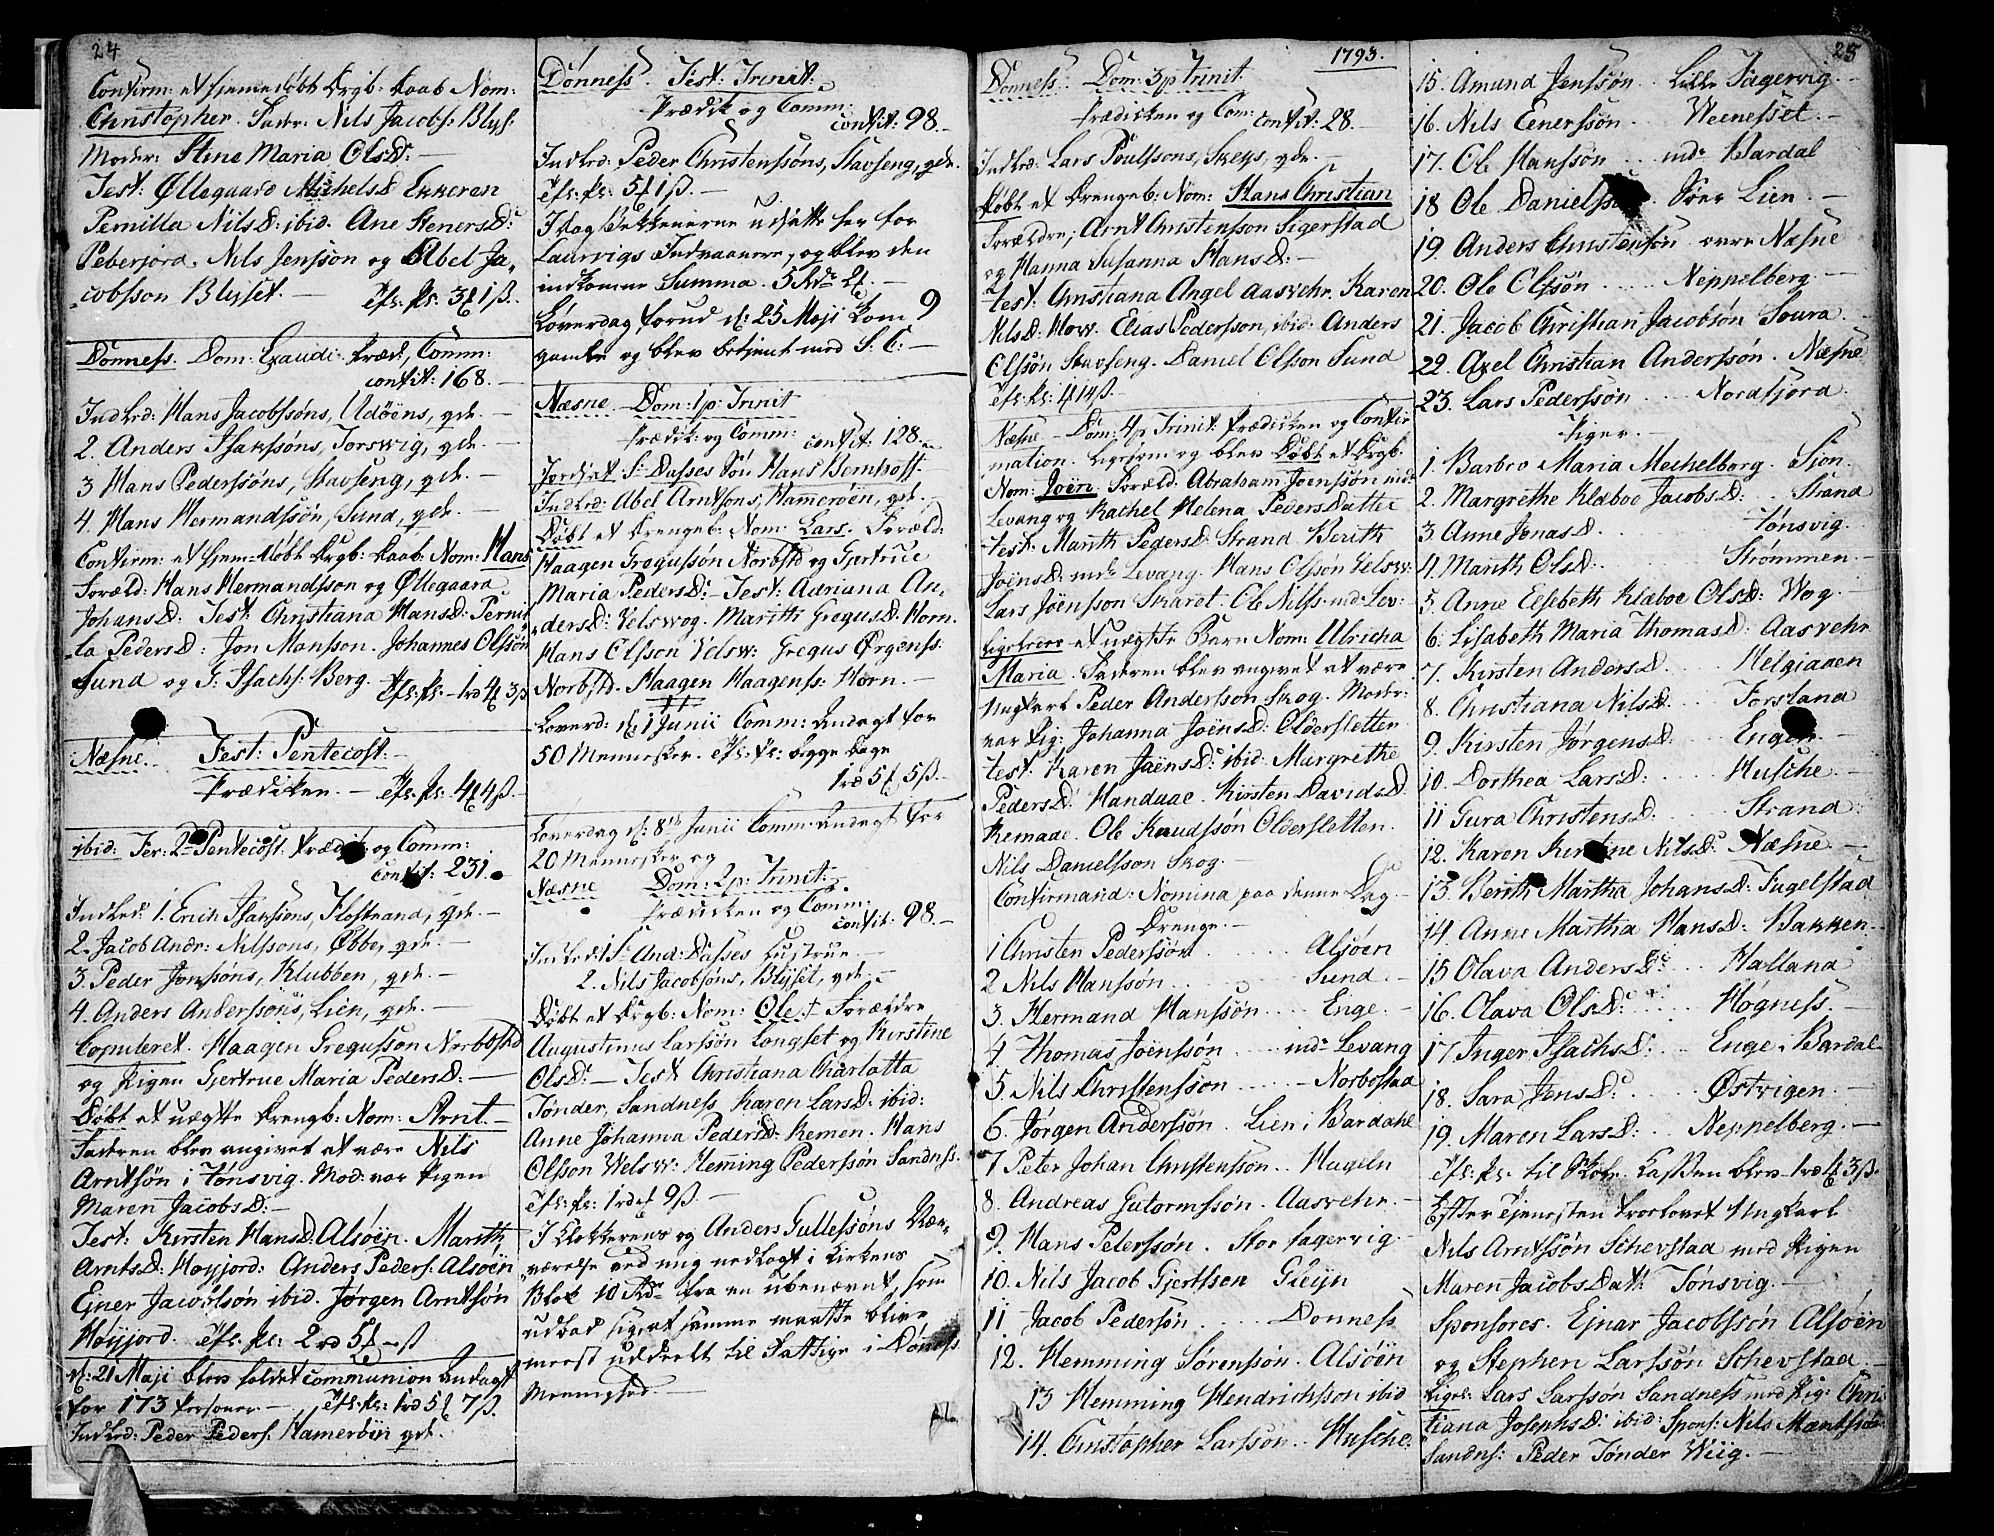 24
Confirm: et hjemmedøbt Drgb: kaab Nom:
Christopher. Fadr: Nils Jacobs: Blys:
Moder: Stine Maria OlsD: —
Test: Øllegaard MichelsD Enneren
Pernilla NilsD: ibid. Ane StenersD:
Peberjord. Nils Jensson og Abel Ja-
cobsson Blyset. —
Dønness. Dom: Exaudi. Præd:, Comm:
confit: 168. —
Indlrd: Hans Jacobssøns, Udøens, qde. —
2. Anders Isakssøns, Forswig, qde. —
3 Hans Pederssøns, Stavseng, qde. —
4. Hans Hermandssøn, Sund, qde. —
Confirm: et hjem: døbt Drgb: kaab Nom: Hans
Foræld: Hans Hermandsson og Øllegaard
JohansD: Test: Christiana HansD: Pernil-
la PedersD: Jon Monsson. Johannes Olssøn
Sund og J: Isachs: Berg.
Næsne. Fest: Pentecost: —
Prædiken. —
ibid: Fer: 2 Pentecost: Prædik og Comm:
confit: 231.
Indled: 1. Erich Isakssøns, Flostrand, qde. —
2. Jacob Andr: Nilssons, Øbbe, qde. —
3. Peder Jonssøns, Klubben, qde. —
4. Anders Anderssøns, Lien, qde. —
Copuleret. Haagen Gregusson Norbostad
og Pigen Gjertrue Maria PedersD: —
Døbt et uægte Drengb: Nom: Arnt. —
Fadren blev angivet at være Nils
Arntsøn i Tønsvig. Mod: var Pigen
Maren JacobsD: —
Test: Kirsten HansD: Alsøen. Marith
ArntsD: Høyjord: Anders Peders: Alsøen
Ejner Jacobssøn ibid. Jørgen Arntsøn
Høyjord.
d: 21 Maji blev holdet communion Andagt
for 173 personer. —
Indlrd: Peder Peders: Hamerøen qde.
Dønness. Fest: Trinit:
Prædik og Comm:
confit: 98. —
Indlrd: Peder Christenssøns, Stavseng, qde.
I dag Bekkenerne udsatte her for
Laurvigs Indvaanere, og blev den
indkomne Summa. 5 Rdr 2 —
Løverdag forud d: 25 Maji kom 9
gamle og blev betjent med S. C: —
Næsne Dom: 1 p: Trinit
Prædik: og Comm: confit: 128. —
Jordfæt Sr Dasses Søn Hans Bernhoft. —
Indlrd: Abel Arntsons, Hamerøen, qde.
Døbt et Drengeb: Nom: Lars. Foræld:
Haagen Gregussøn Norbstd og Gjertrue
Maria PedersD: — Test: Adriana An-
dersD: Velswog. Marith GregusD: Horn.
Hans Olsson Velsw: Gregus Ørgenss:
Norbstd. Haagen Haagenss: Horn. —
Løverd: d: 1 Junii Comm: Andagt for
50 Mennesker. begge dage
Løverdag d: 8de Junii Comm: Andagt for
20 Mennesker og
Næsne Dom: 2 p: Trinit:
Prædiken og Comm:
confit: 98. —
Indled: 1 Sr And: Dasses Hustrue. —
2. Nils Jacobsøns, Blyset, qde. —
Døbt et Drgb: Nom: Ole. † Forældre
Augustinus Larssøn Longset og Kirstine
OlsD: — Test Christiana Charlotta
Tønder, Sandness, Karen LarsD: ibid:
Anne Johanna PedersD: Remen. Hans
Olsson Velsw: Heming Pederssøn Sandnss.
I Klokkerens og Anders Gullessøns Nær-
værelse ved mig nedlagt i Kirkens
Blok 10 Rdr fra en ubenævnt, som
udbad sig at samme maatte blive
meest uddeelt til Fattige i Dønness
Menighed. —
1793.
Dønness. Dom: 3 p Trinit
Prædiken og Com: confit: 28. —
Indled: Lars Poulssons, Skeys, qde. —
Døbt et Drengeb: Nom: Hans Christian
Forældre; Arnt Christensson Sigerstad
og Hanna Susanna HansD: —
Test: Christiana Angel Aasvehr. Karen
NilsD: How. Elias Pedersson, ibid: Anders
Olssøn Stavseng. Daniel Olsson Sund
Næsne — Dom: 4 p Trinit: Prædiken og Confir
mation. Ligesom og blev Døbt et Drgb:
Nom: Joen. Foræld: Abraham Joenssøn indr
Levang og Rachel Helena PedersDatter
test: Marith PedersD: Strand Berith
JoensD: indr Levang. Hans Olsson Velsw:
Lars Joensson Skaret. Ole Nilss: indr Lev:
Ligeledes et uægte Barn Nom: Ulricha
Maria. Fadren blev angivet at være
Ungkarl Peder Andersson Skog. Moder:
var Pig: Johanna JoensD: Oldersletten
test: Karen JaensD: ibid: Margrethe
PedersD: Handaae. Kirsten DavidsD:
Remaae. Ole Knudssøn Oldersletten.
Nils Danielsson Skog.
Confirmand: Nomina paa denne Dag —
Drenge. —
1 Christen Pederssøn Alsøen
2 Nils Hanssøn Sund. —
3. Hermand Hanssøn Enge. —
4 Thomas Joenssøn indr Levang
5. Nils Christenssøn Norbostad
6. Jørgen Anderssøn. Lien i Bardahl
7 Peter Johan Christensson. Hugeln
8. Andreas Gutormssøn. Aasvehr. —
9. Hans Peterssøn. Stor fagervig. —
10. Nils Jacob Gjertsson Gleijn
11 Jacob Pedersøn Dønness
12. Hemming Sørenssøn. Alsøen
13 Hemming Hendrichsson ibid
14. Christopher Larsson. Husche.
25
15. Amund Jenssøn. Lille Fagervig. —
16. Nils Eenerssøn Weenesset. —
17. Ole Hanssøn indr Bardal
18 Ole Danielssøn. Søer Lien. —
19 Anders Christensøn ovre Næsne
20. Ole Olssøn Neppelberg. —
21. Jacob Christian Jacobsøn Soura. —
22. Axel Christian Anderssøn. Næsne
23. Lars Pederssøn Nordfjord.
Piger. —
1. Barbro Maria Mechelborg. Sion.
2. Margrethe Klæboe JacobsD: Strand
3. Anne JonasD: Tønsvig.
4. Marith OlsD: Strømmen. —
5. Anne Elsebeth Klæboe OlsD: Wog. —
6. Lisabeth Maria ThomasD: Aasvehr
7. Kirsten AndersD: Helgiaaen
8. Christiana NilsD: Forsland
9. Kirsten JørgensD: Engen. —
10. Dorthea LarsD: Husche. —
11 Gura ChristensD: Strand.
12. Karen Kirstine NilsD: Næsne. —
13. Berith Martha JohansD: Fugelstad
14. Anne Martha HansD: Bakken. —
15 Olava AndersD: Halland
16. Olava OlsD: Høgness. —
17. Inger IsachsD: Enge i Bardal
18. Sara JensD: Østvigen. —
19. Maren LarsD: Neppelberg. —
Efter Tjenesten trolovet Ungkarl
Nils Arntssøn Schevstad med Pigen
Maren JacobsDatt: Tønsvig. —
Sponsores. Ejnar Jacobssøn Alsøen
og Stephen Larssøn Schevstad. —
Ligel: Lars Larssøn Sandness med Pig: Chri
tiana JosephsD: ibid: Spons: Nils Mentsøn
Sandns: Peder Tønder Wiig. —